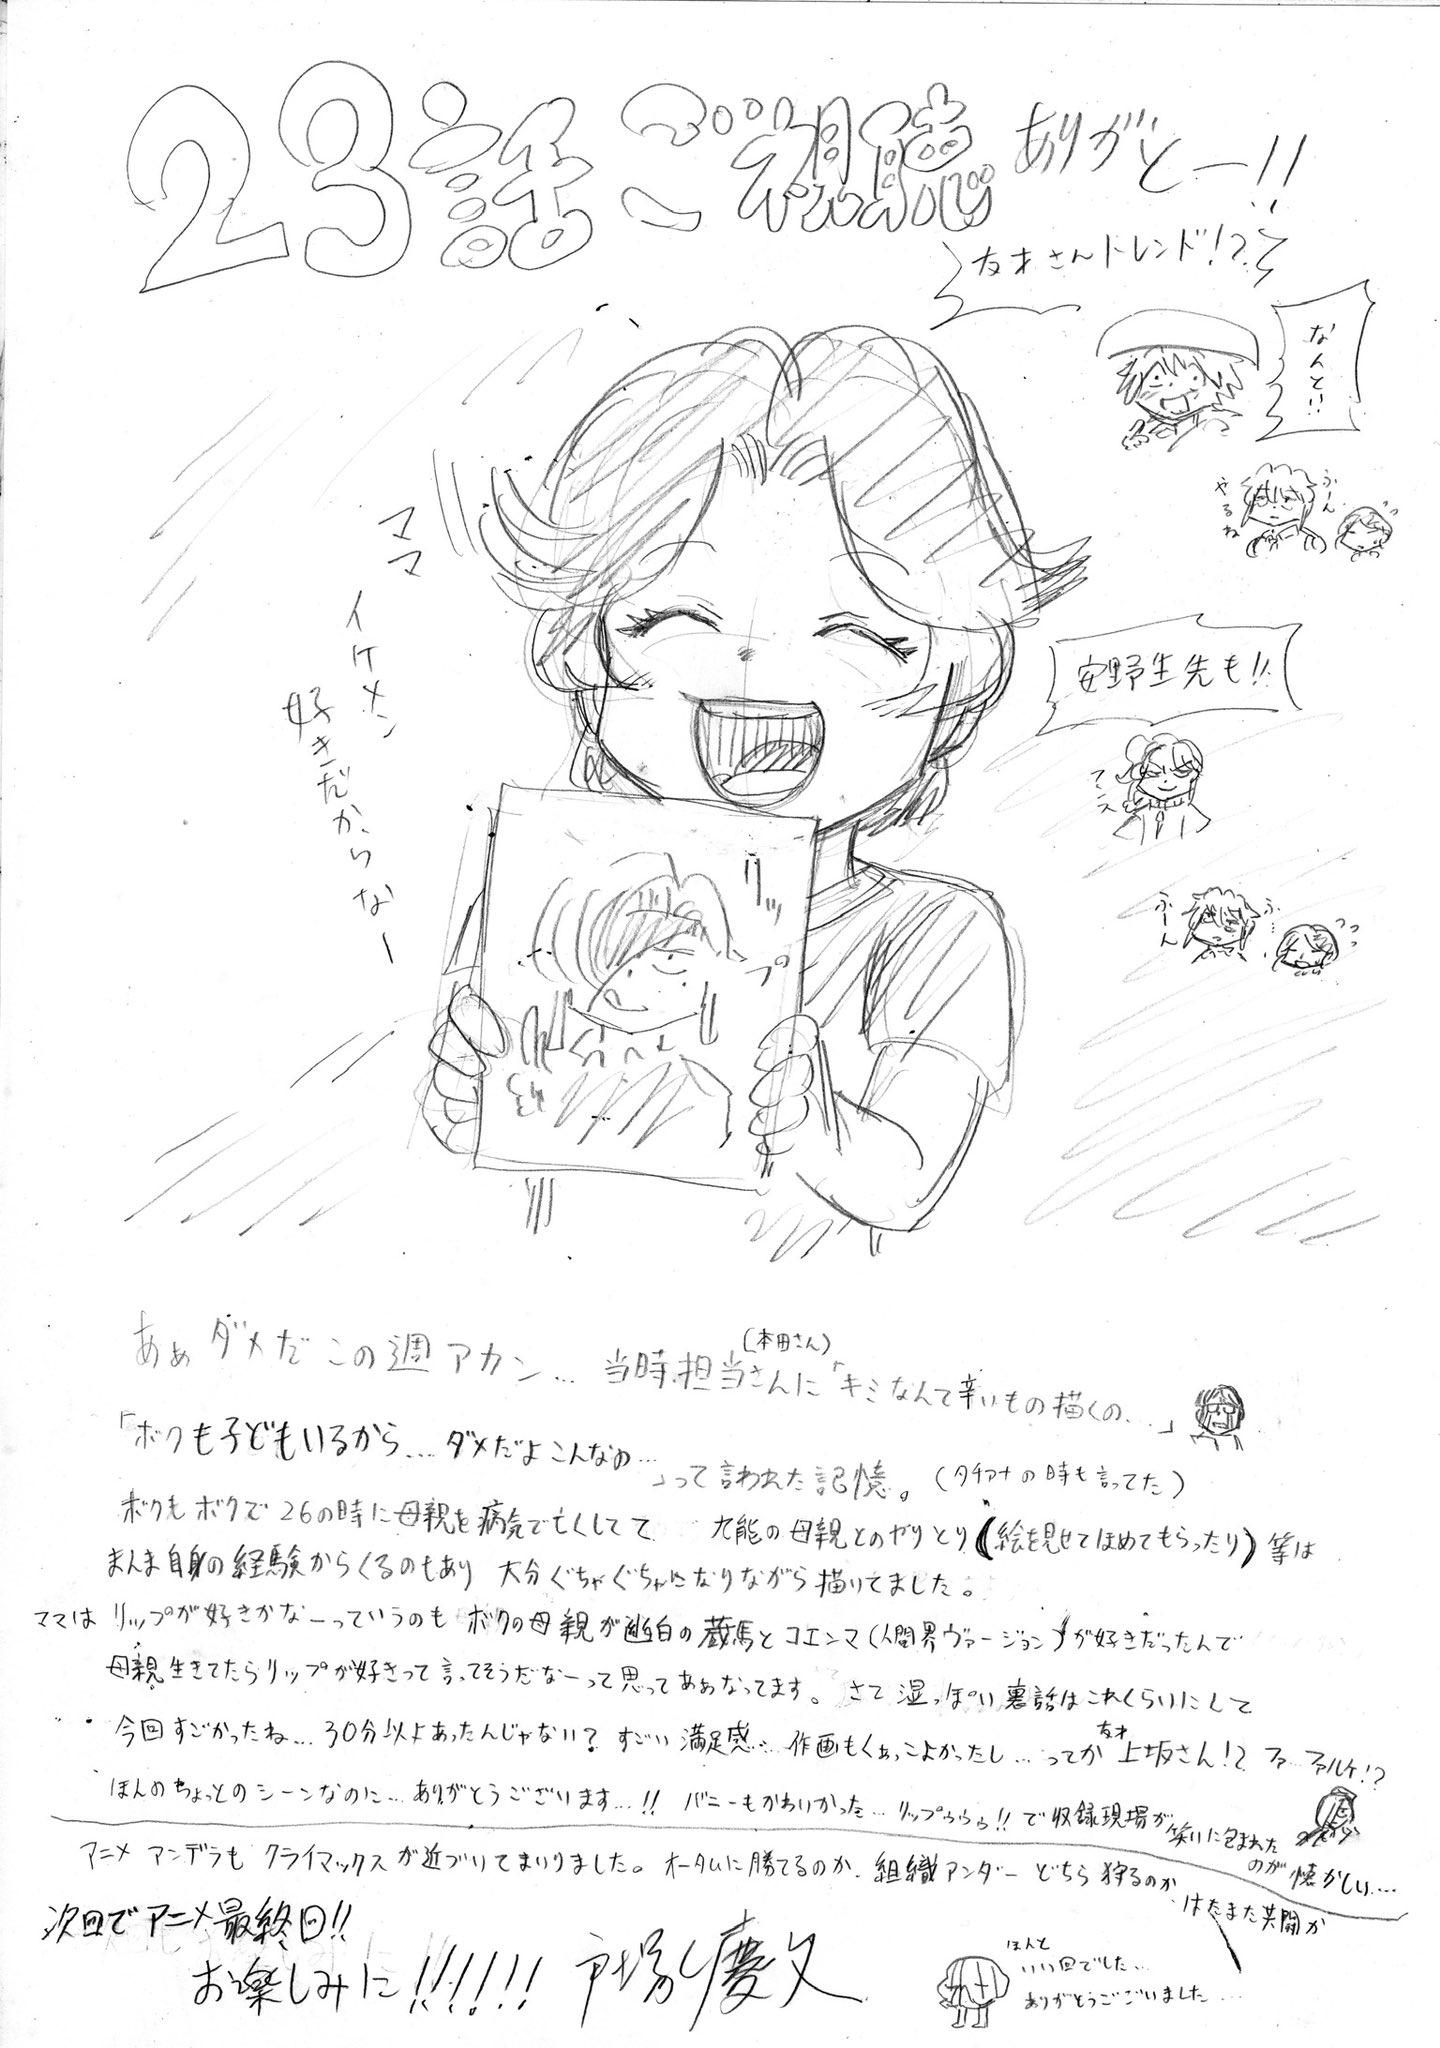 23話ご視聴ありがとー!!
友才さんトレンド!?
なんと!!
ふーん
やるね
安野先生も!!
ふーん
ママ
イケメン
好きだからなー
リップ
あぁダメだこの週アカン… 当時担当さん(本田さん)に「キミなんて辛いもの描くの…」
「ボクも子どもいるから… ダメだよこんなの…」って言われた記憶。(タチアナの時も言ってた)
ボクもボクで26の時に母親を病気で亡くしてて 九能の母親とのやりとり(絵を見せてほめてもらったり)等は
まんま自身の経験からくるのもあり 大分ぐちゃぐちゃになりながら描いてました。
ママはリップが好きかなーっていうのも ボクの母親が幽白の蔵馬とコエンマ(人間界ヴァージョン)が好きだったんで
母親生きてたらリップが好きって言ってそうだなーって思ってあぁなってます。さて湿っぽい裏話はこれくらいにして
今回すごかったね… 30分以上あったんじゃない? すごい満足感… 作画もくぁっこよかったし… ってか友才上坂さん!? ファ…ファルケ!?
ほんのちょっとのシーンなのに… ありがとうございます…!! バニーもかわいかった… リップぅぅぅ!!で収録現場が笑いに包まれたのが懐かしい…
アニメ アンデラもクライマックスが近づいてまいりました。オータムに勝てるのか、組織アンダーどちら狩るのか はたまた共闘か
次回でアニメ最終回!!
お楽しみに!!!!!!
戸塚慶文
ほんと
いい回でした…
ありがとうございました…